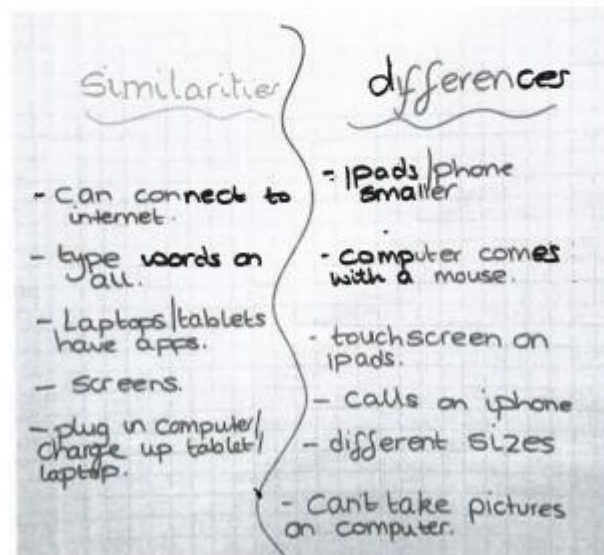 Similarities
- can connect to
internet.
- type words on
all.
- Laptops/tablets
have apps.
- screens.
- plug in computer/
charge up tablet/
laptop.
differences
- ipads/phone
smaller
- computer comes
with a mouse.
- touchscreen on
ipads.
- calls on iphone
- different sizes
- Can't take pictures
on computer.